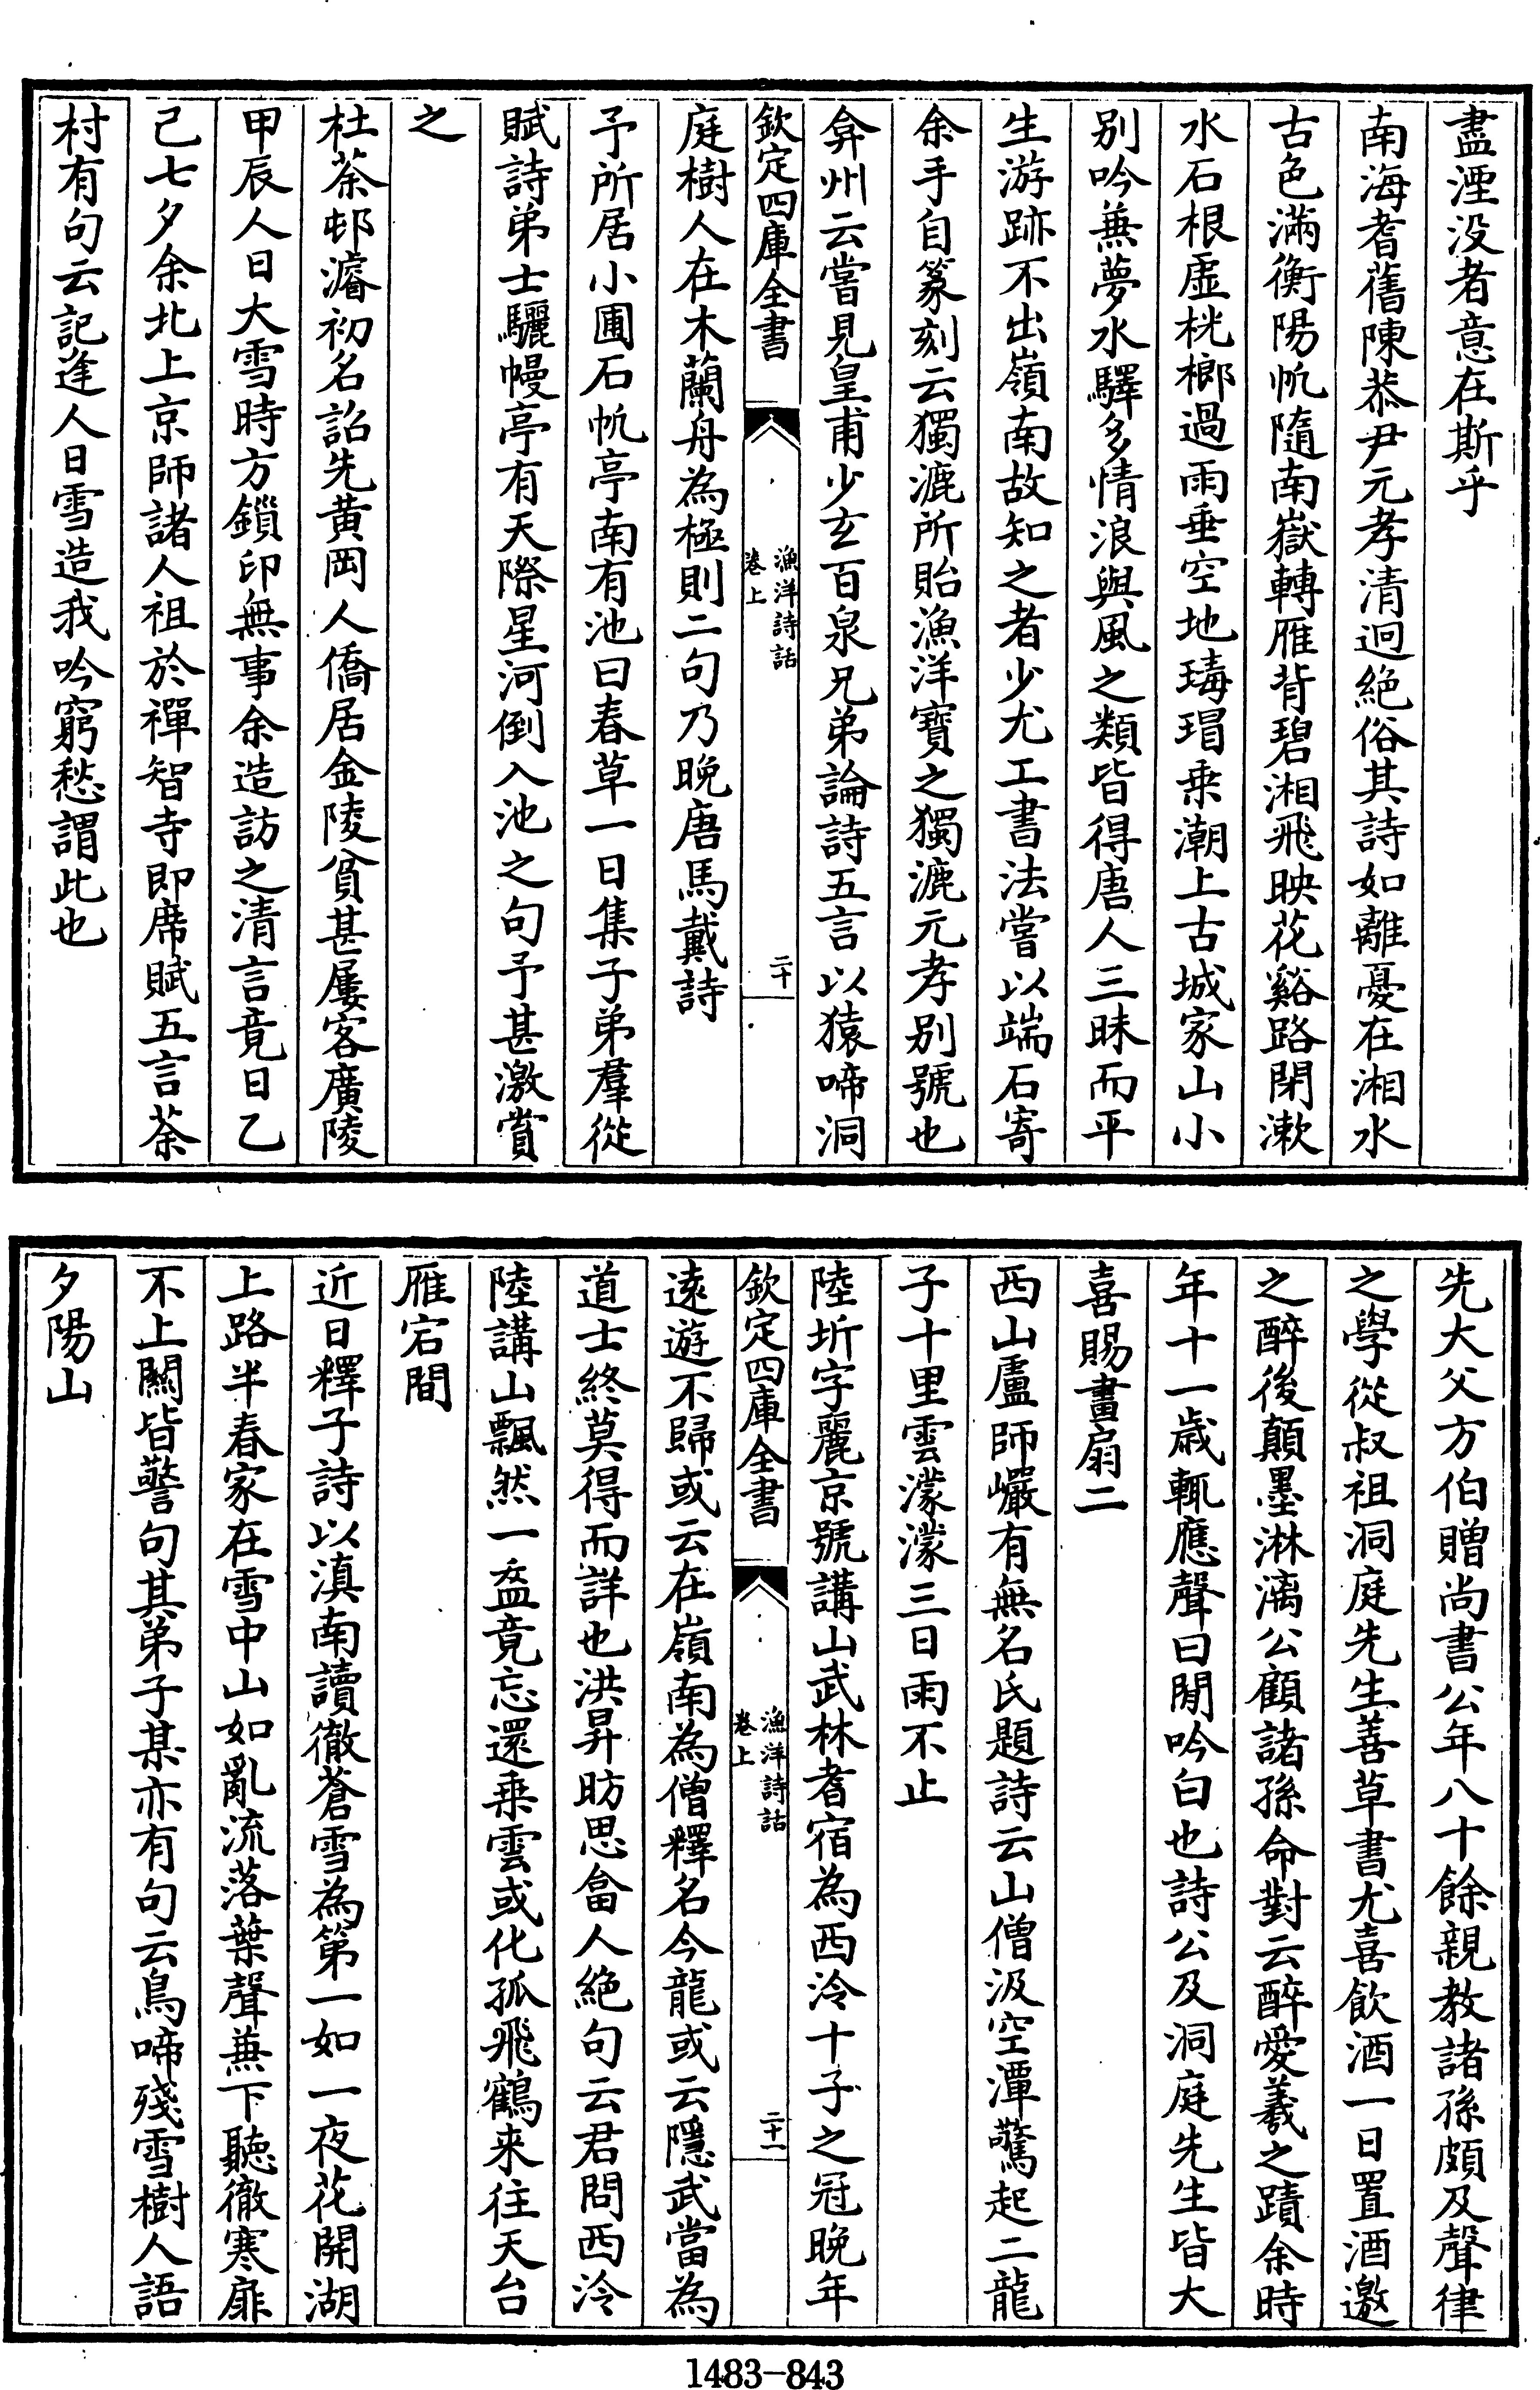 盡湮没者意在斯乎
南海耆舊陳恭尹元孝清迥絶俗其詩如離憂在湘水
古色滿衡陽帆隨南嶽轉雁背碧湘飛映花谿路閉漱
水石根虚桄榔過雨垂空地瑇瑁乗潮上古城家山小
别吟蕪夢水驛多情浪與風之類皆得唐人三昧而平
生游跡不出嶺南故知之者少尤工書法嘗以端石寄
余手自篆刻云獨漉所貽漁洋寳之獨漉元孝别號也
弇州云嘗見皇甫少玄百泉兄弟論詩五言以猿啼洞
欽定四庫全書
漁洋詩話
卷上
二十
庭樹人在木蘭舟為極則二句乃晩唐馬戴詩
予所居小圃石帆亭南有池曰春草一日集子弟羣從
賦詩弟士驪幔亭有天際星河倒入池之句予甚激賞
之
杜茶邨濬初名詔先黄岡人僑居金陵貧甚屢客廣陵
甲辰人日大雪時方鎻印無事余造訪之清言竟日乙
己七夕余北上京師諸人祖於禪智寺即席賦五言茶
村有句云記逢人日雪造我吟窮愁謂此也
先大父方伯贈尚書公年八十餘親教諸孫頗及聲律
之學從叔祖洞庭先生善草書尤喜飲酒一日置酒邀
之醉後顛墨淋漓公顧諸孫命對云醉愛羲之蹟余時
年十一歳輒應聲曰閒吟白也詩公及洞庭先生皆大
喜賜畫扇二
西山盧師巖有無名氏題詩云山僧汲空潭驚起二龍
子十里雲濛濛三日雨不止
陸圻字麗京號講山武林耆宿為西泠十子之冠晩年
欽定四庫全書
漁洋詩話
卷上
二十一
遠遊不歸或云在嶺南為僧釋名今龍或云隱武當為
道士終莫得而詳也洪昇昉思畣人絶句云君問西泠
陸講山飄然一盋竟忘還乗雲或化孤飛鶴来往天台
雁宕間
近日釋子詩以滇南讀徹蒼雪為第一如一夜花開湖
上路半春家在雪中山如亂流落葉聲蕪下聽徹寒扉
不上關皆警句其弟子某亦有句云鳥啼殘雪樹人語
夕陽山
1483-843